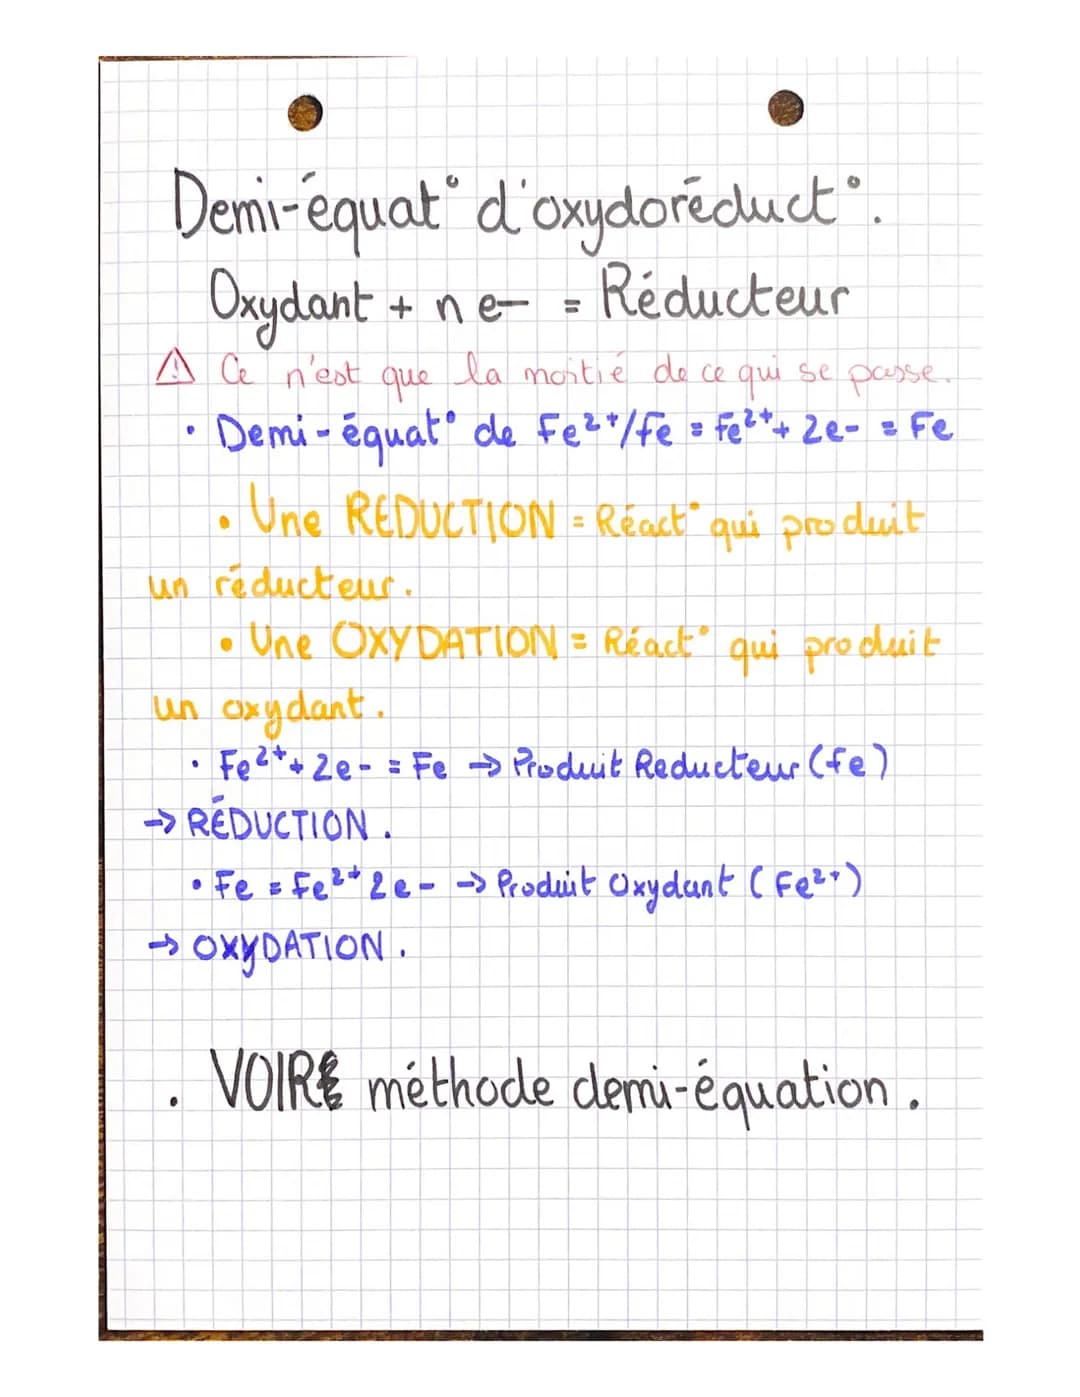 Demi-équat° d'oxydoréduct°.
Oxydant + n e- = Réducteur
⚠ Ce n'est que la moitié de ce qui se passe.
• Demi-équat° de Fe²⁺/Fe = Fe²⁺+ 2e- = Fe
• Une REDUCTION = Réact° qui produit
un réducteur.
• Une OXYDATION = Réact° qui produit
un oxydant.
• Fe²⁺+ 2e- = Fe → Produit Reducteur (Fe)
→ RÉDUCTION.
• Fe = Fe²⁺ 2e- → Produit Oxydant (Fe²⁺)
→ OXYDATION.
. VOIR méthode demi-équation.